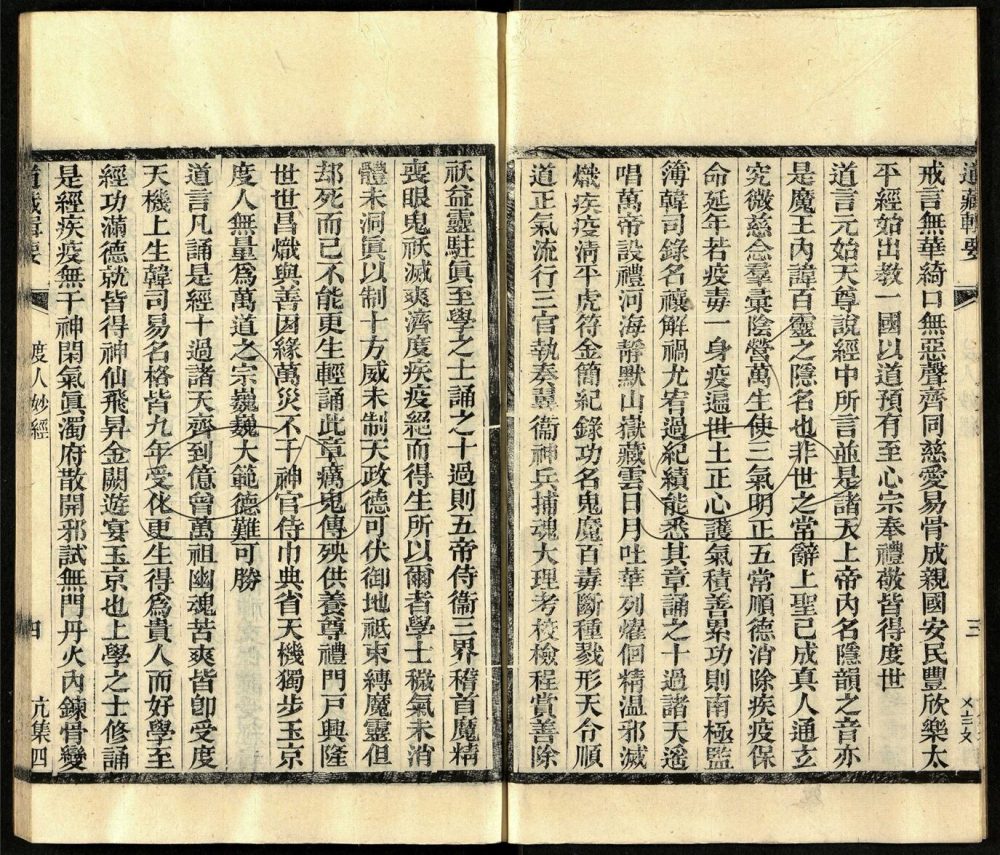 道藏輯要
三
戒言無華綺口無惡聲齊同慈愛易骨成親國安民豐欣樂太
平經始出教一國以道預有至心宗奉禮敬皆得度世
道言元始天尊說經中所言並是諸天上帝內名隱韻之音亦
是魔王內諱百靈之隱名也非世之常辭上聖已成真人通玄
究微慈念羣彙陰營萬生使三氣明正五常順德消除疾疫保
命延年若疫毒一身疫遍世土正心護氣積善累功則南極監
簿韓司錄名禳解禍尤宥過紀績能悉其章誦之十過諸天遙
唱萬帝設禮河海靜默山嶽藏雲日月吐華列燿佪精温邪滅
熾疾疫淸平虎符金簡紀錄功名鬼魔百毒斷種戮形天令順
道正氣流行三官執奏翼衞神兵捕魂大理考校檢程賞善除
祆益靈駐眞至學之士誦之十過則五帝侍衞三界稽首魔精
喪眼鬼祆滅爽濟度疾疫絕而得生所以爾者學士穢氣未消
體未洞眞以制十方威未制天政德可伏御地祇束縛魔靈但
却死而已不能更生輕誦此章癘鬼傳殃供養尊禮門戸興隆
世世昌熾與善因緣萬災不干神官侍巾典省天機獨步玉京
度人無量爲萬道之宗巍巍大範德難可勝
道言凡誦是經十過諸天齊到億曾萬祖幽魂苦爽皆卽受度
天機上生韓司易名格皆九年受化更生得爲貴人而好學至
經功滿德就皆得神仙飛昇金闕遊宴玉京也上學之士修誦
是經疾疫無干神閑氣眞濁府散開邪試無門丹火內鍊骨變
道藏輯要
度人妙經
四
亢集四